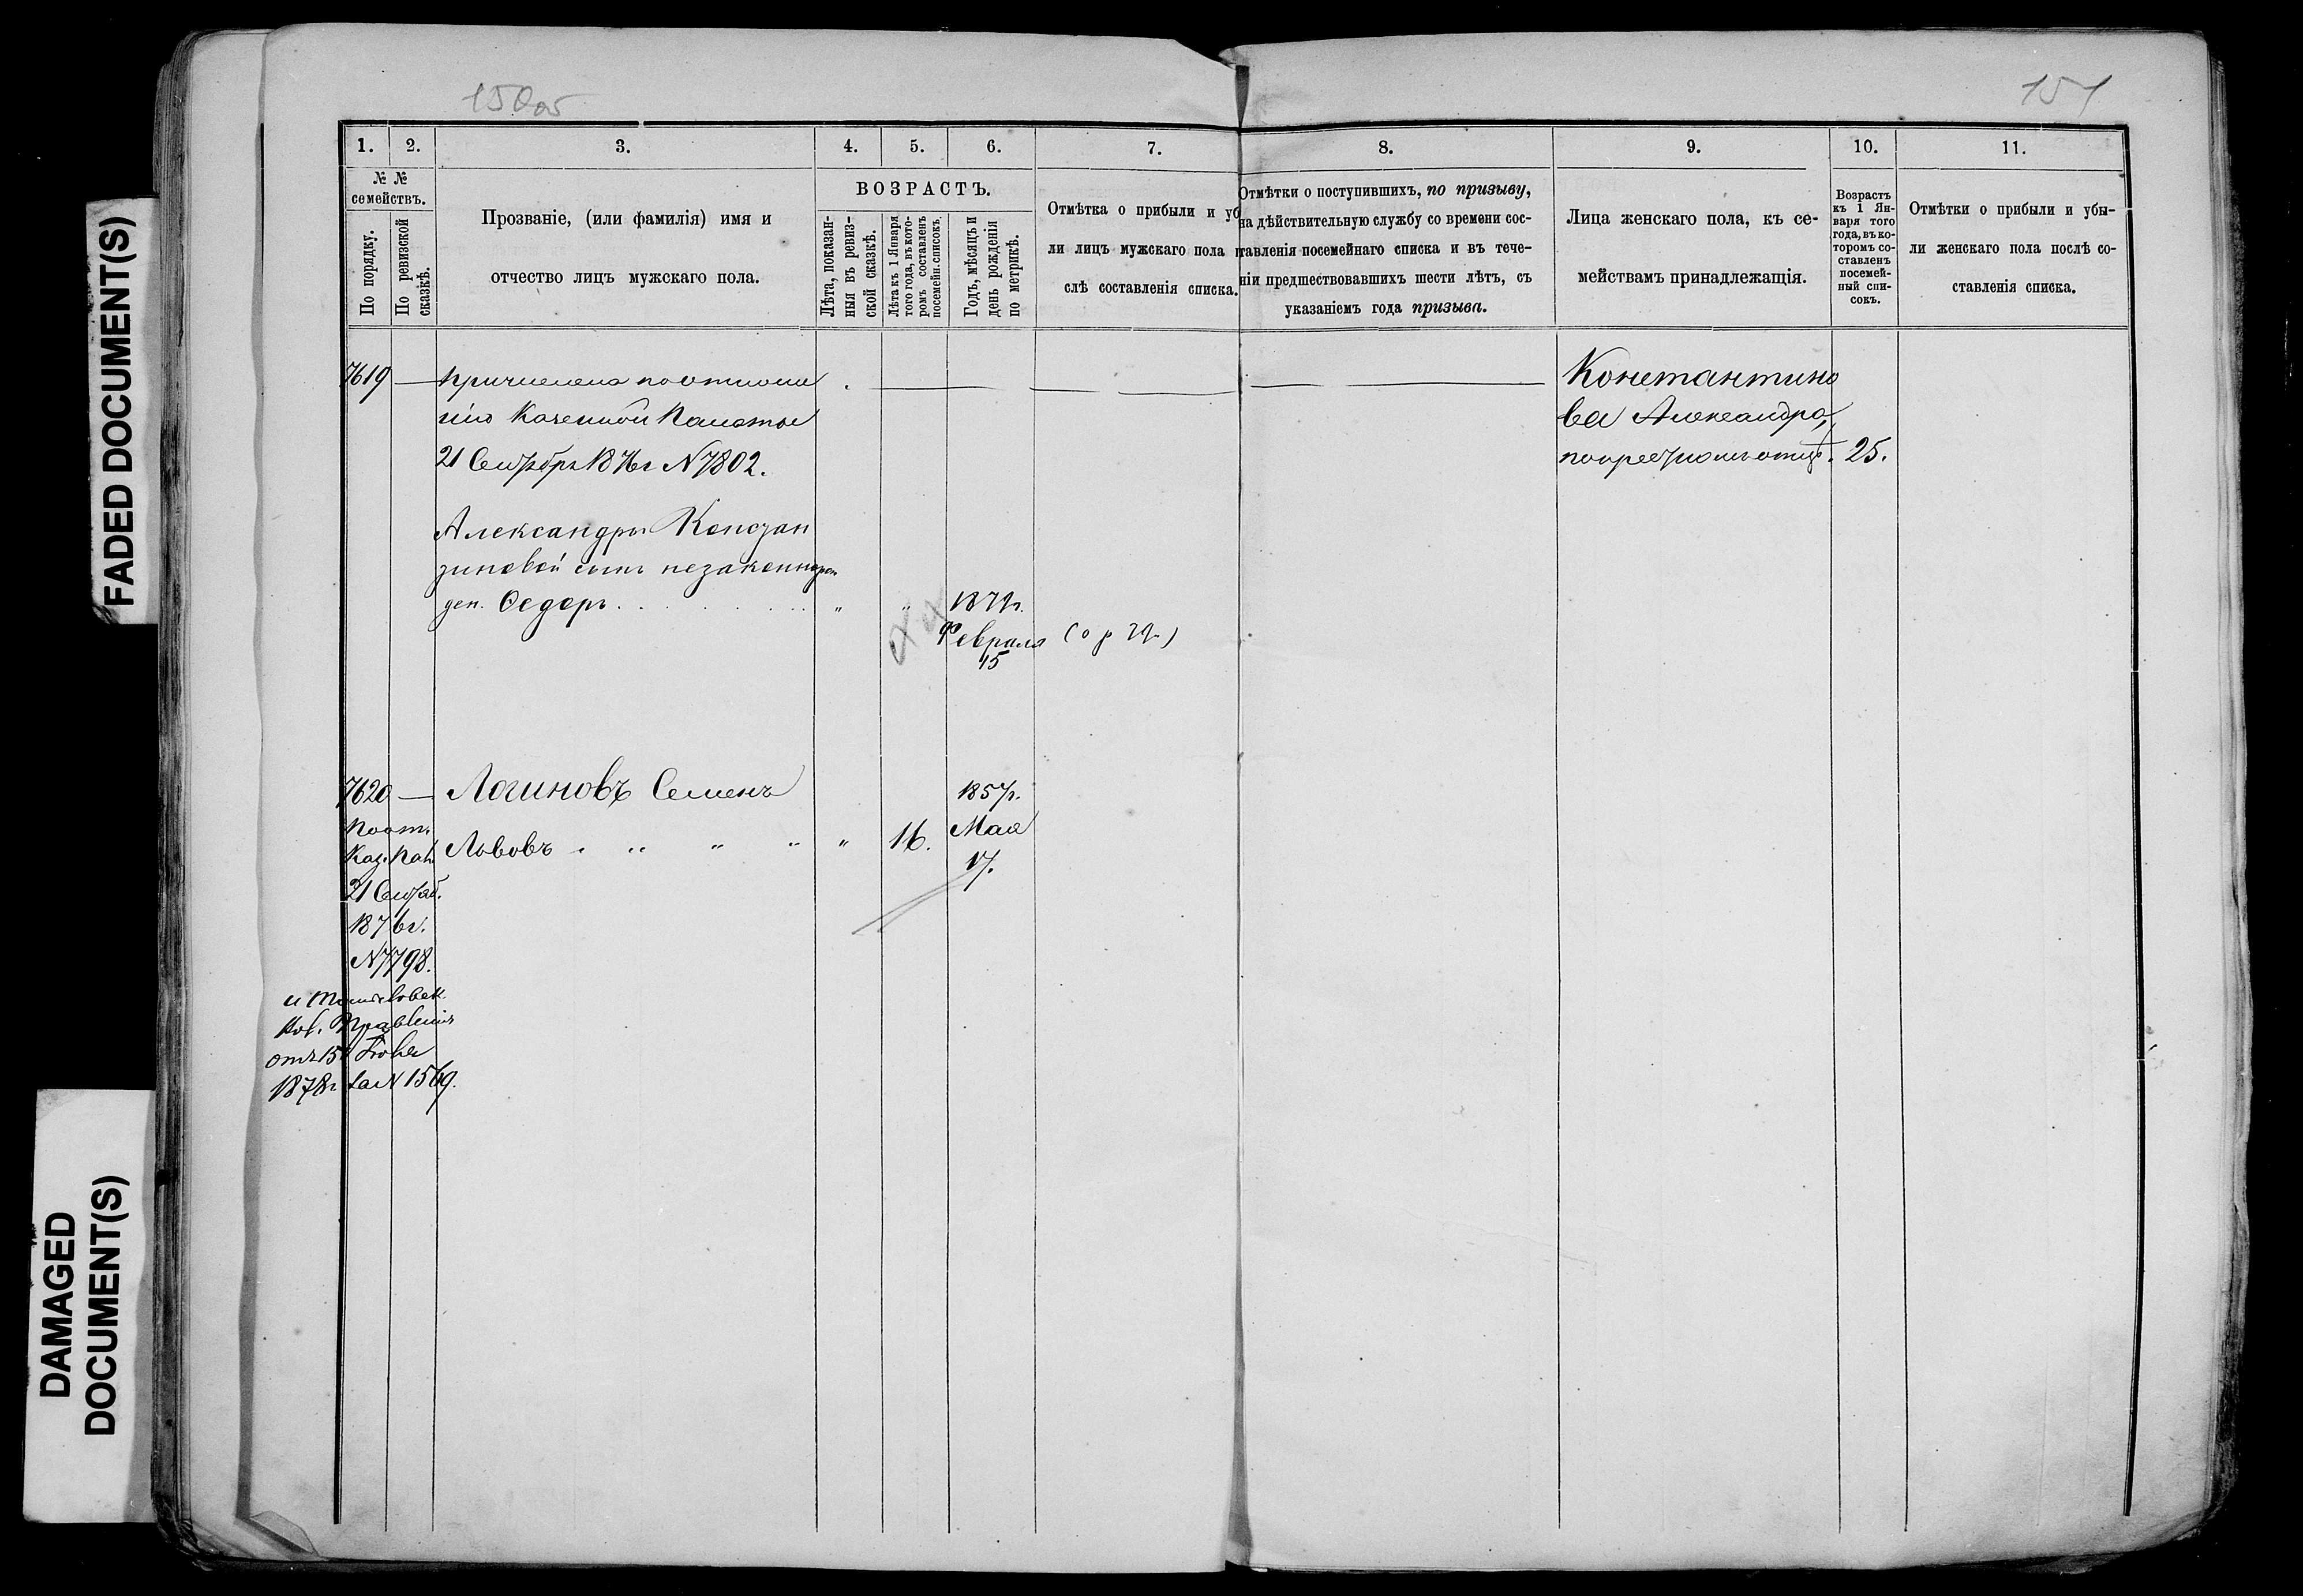 FADED DOCUMENT(S)
DAMAGED
DOCUMENT(S)
150об
151
1.
2.
3.
4.
5.
6.
7.
8.
9.
10.
11.
№ №
семействъ.
По порядку.
По ревизской
сказкѣ.
Прозваніе, (или фамилія) имя и
отчество лицъ мужскаго пола.
ВОЗРАСТЪ.
Лѣта, показан-
ныя въ ревиз-
ской сказкѣ.
Лѣта къ 1 Января
того года, въ кото-
ромъ составленъ
посемейн. списокъ
Годъ, мѣсяцъ и
день рожденія
по метрикѣ.
Отмѣтка о прибыли и уб
ли лицъ мужскаго пола п
слѣ составленія списка.
Отмѣтки о поступившихъ, по призыву,
на дѣйствительную службу со времени сос-
тавленія посемейнаго списка и въ тече-
ніи предшествовавшихъ шести лѣтъ, съ
указаніемъ года призыва.
Лица женскаго пола, къ се-
мействамъ принадлежащія.
Возрастъ
къ 1 Ян-
варя того
года, въ ко-
торомъ со-
ставленъ
посемей-
ный спи-
сокъ.
Отмѣтки о прибыли и убы-
ли женскаго пола послѣ со-
ставленія списка.
7619 — Причислена по отноше
нію Казенной Палаты
21 Сентября 1876г N7802.
Константино
ва Александра,
по крестному отцу. 25.
Александры Констан
тиновой сынъ незаконнорож
ден. Ѳедоръ . . . . . . „ „ 1879г.
Февраля
15
7620 — Логиновъ Семенъ 1857г.
Львовъ „ „ „ „ „ 16. Мая
17.
По от.
Каз. Пал.
21 Сентяб.
1876г.
N7798.
Правленія
отъ 15
1878г за N 1569.